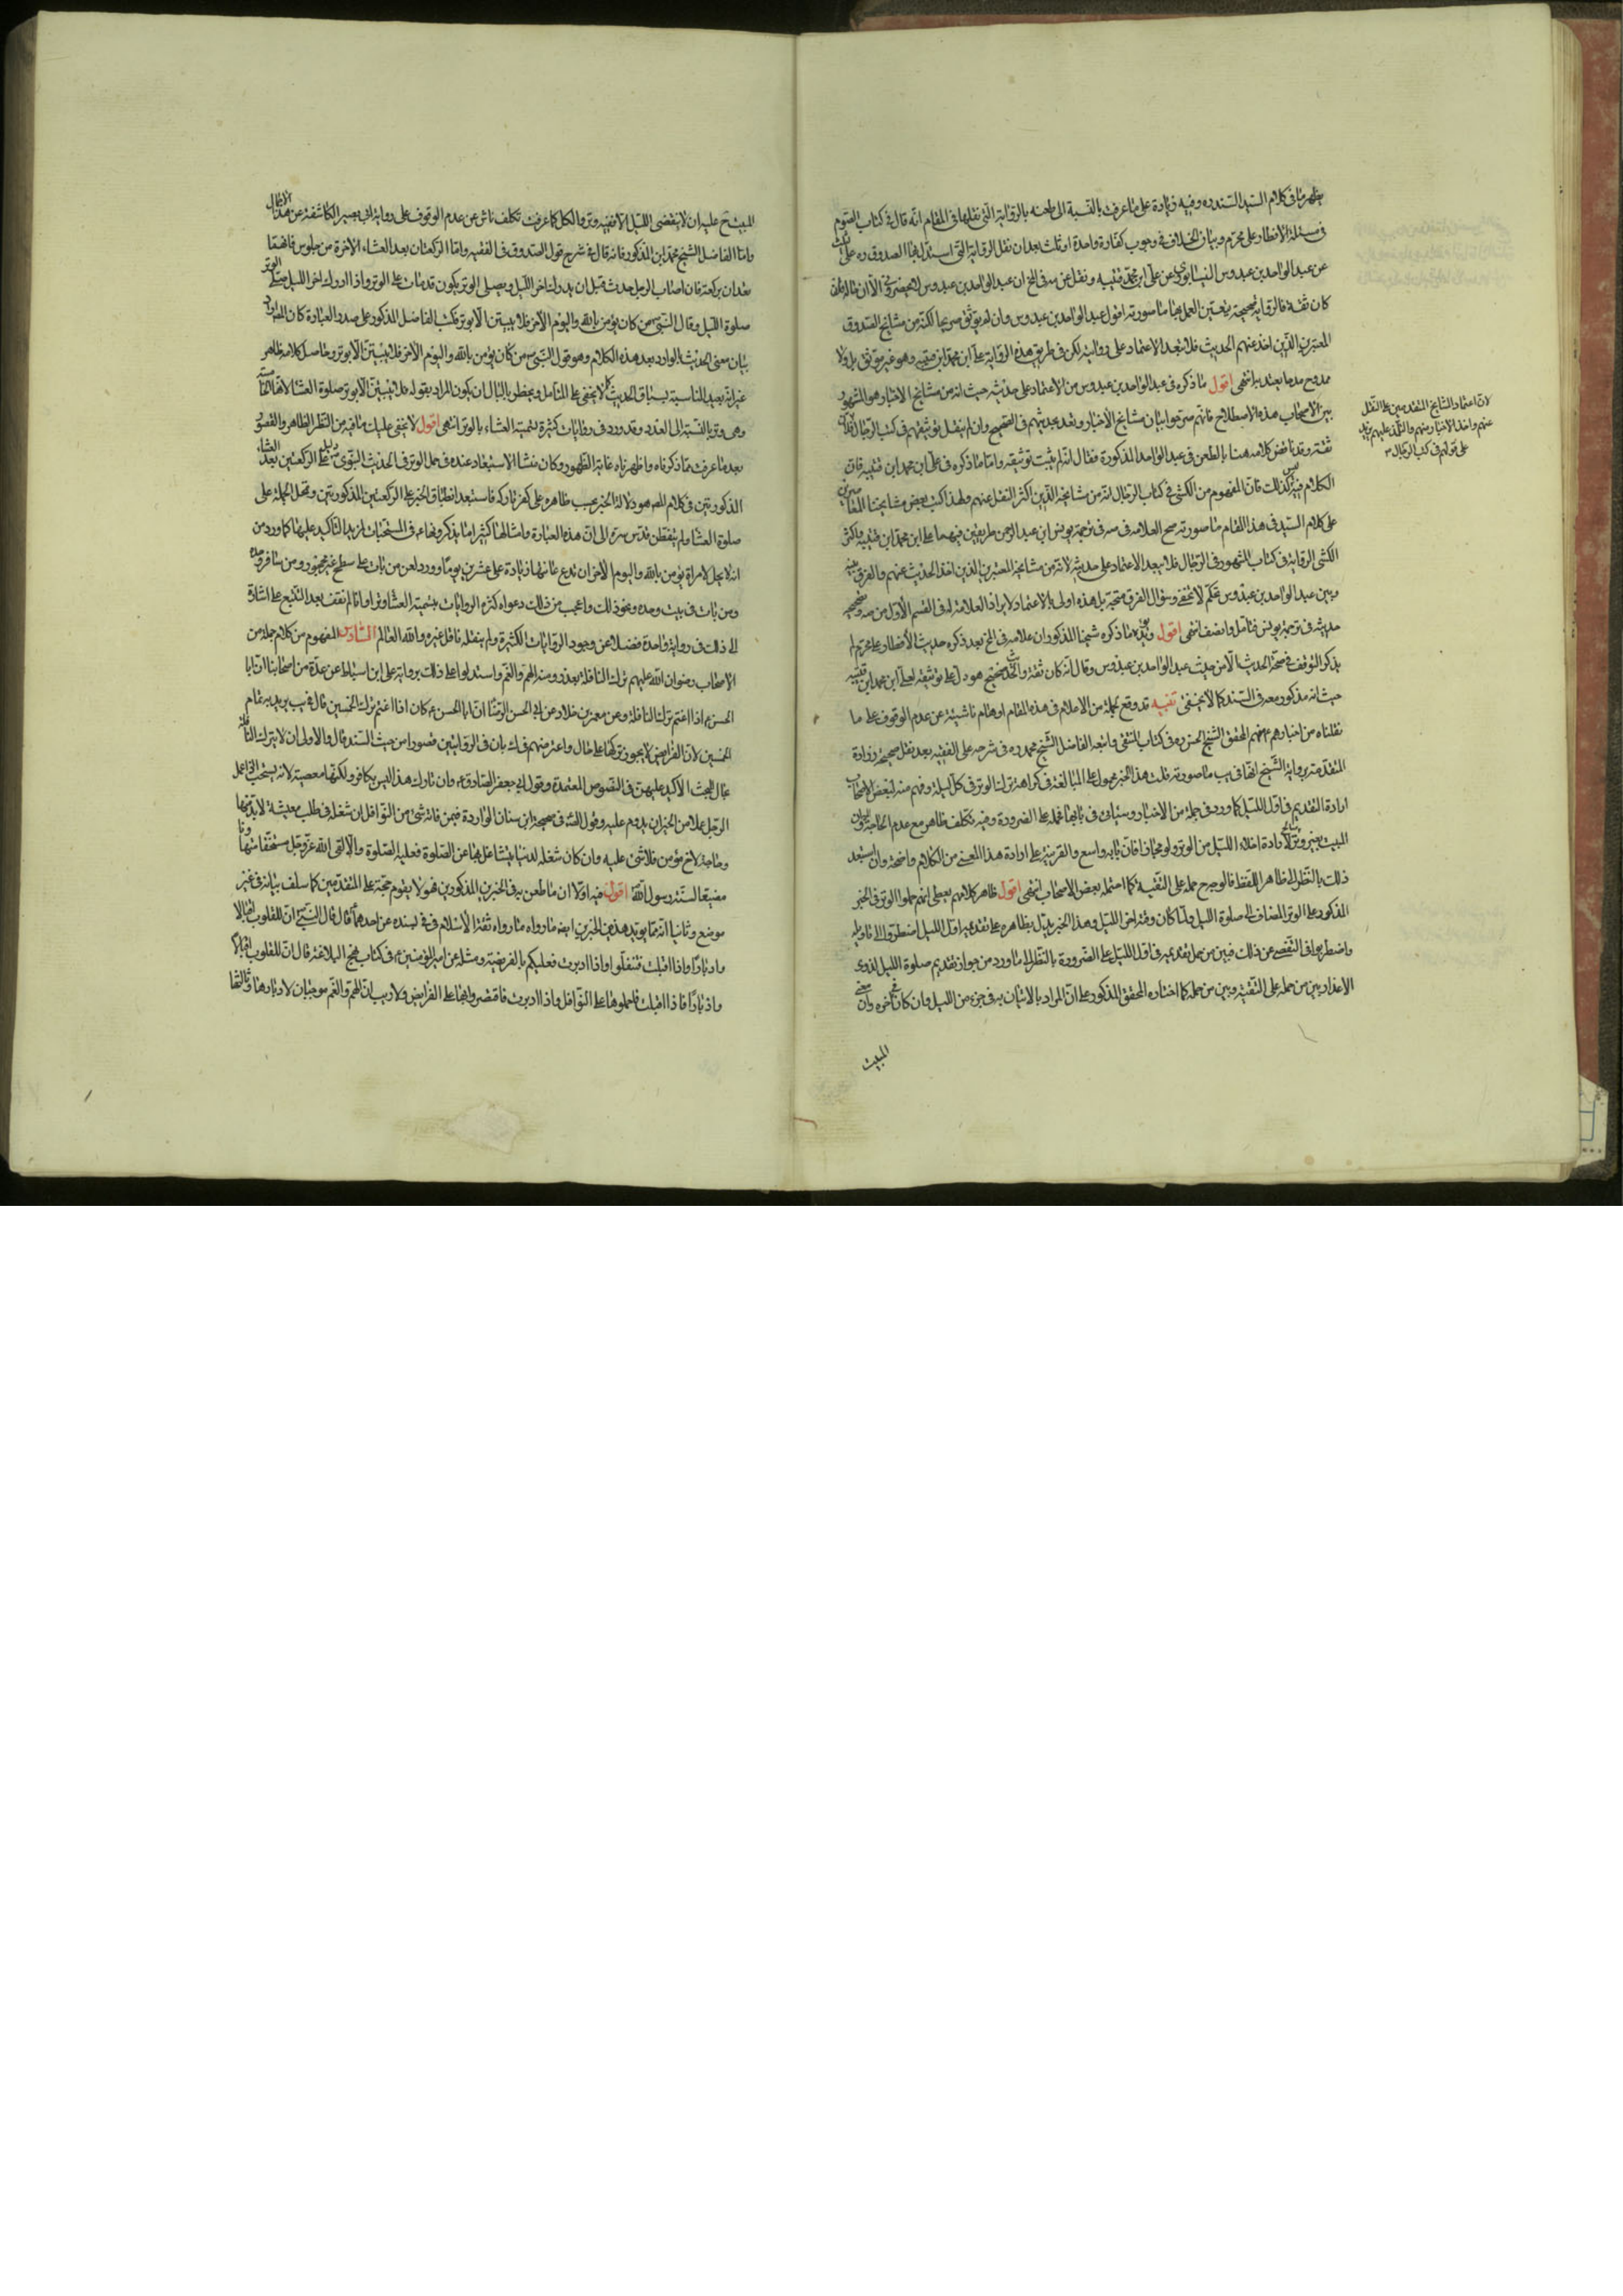 يظهر ما فى كلام السيد السند ره وفيه زيادة على ما عرفت بالنسبة الى طعنه بالرواية التى نقلها فى المقام انه قال فى كتاب الصوم
فى مسئلة الافطار على محرم وبيان الخلاف فى وجوب كفارة واحدة او ثلث بعد ان نقل الرواية التى استدل بها الصدوق ره على
عن عبد الواحد بن عبدوس النيسابورى عن على ابن محمد قتيبه ونقل عن مه فى لخ ان عبد الواحد بن عبدوس لا يحضرنى الا ان
كان ثقة فالرواية صحيحة يتعين العمل بها ما صورته اقول عبد الواحد بن عبدوس وان لم يوثق صريحا لكنه من مشايخ الصدوق
المعتبرين الذين اخذ عنهم الحديث فلا يبعد الاعتماد على روايته لكن فى طريق هذه الرواية على ابن محمد ابن قتيبه وهو غير موثق بل ولا
ممدوح مدحا يعتد به انتهى اقول ما ذكره فى عبد الواحد بن عبدوس من الاعتماد على حديثه حيث انه من مشايخ الاخبار هو المشهور
بين الاصحاب هذه الاصطلاح فانهم صرحوا بان مشايخ الاخبار يعد حديثهم فى الصحيح وان لم ينقل توثيقهم فى كتب الرجال
ثقة وقد ناقض كلامه هنا بالطعن فى عبد الواحد المذكورة فقال انه لم يثبت توثيقه واما ما ذكره فى على ابن محمد ابن قتيبه فان
الكلام فيه ليس كذلك فان المفهوم من الكشى فى كتاب الرجال انه من مشايخه الذين اكثر النقل عنهم ولهذا كتب بعض مشايخنا
على كلام السيد فى هذا المقام ما صورته صح العلامه فى سه فى ترجمة يونس ابن عبد الرحمن طريقين فيهما على ابن محمد ابن قتيبه واكثر
الكشى الرواية عنه فى كتاب المشهور فى الرجال فلا يبعد الاعتماد على حديثه لانه من مشايخه المعتبرين الذين اخذ الحديث عنهم والفرق بينه
وبين عبد الواحد بن عبدوس تحكم لا يخفى وسؤال الفرق متجه بل هذه اولى بالاعتماد لايراد العلامة له فى القسم الاول من صه وتصحيحه
حديثه فى ترجمة يونس فتامل وانصف انتهى اقول ويؤيده ما ذكره شيخنا المذكور ان علامه فى لخ بعد ذكره حديث الافطار على محرم لم
يذكر التوقف فى صحة الحديث الا من حيث عبد الواحد بن عبدوس وقال انه كان ثقة والحديث صحيح هو دل على توثيقه لعلى ابن محمد ابن قتيبه
حيث انه مذكور معه فى السند كما لا يخفى تنبيه قد وقع لجملة من الاعلام فى هذه المقام اوهام ناشية عن عدم الوقوف على ما
نقلناه من اخبارهم ع منهم المحقق الشيخ الحسن ره فى كتاب المنتقى واتبعه الفاضل الشيخ محمد ره فى شرحه على الفقيه بعد نقل صحيحة زرارة
المتقدمة برواية الشيخ لها فى يب ما صورته قلت هذا الخبر محمول على المبالغة فى كراهة ترك الوتر فى كل ليلة وفهم منه بعض الاصحاب
ارادة التقديم فى اول الليل كما ورد فى جملة من الاخبار وسياتى فى بابها محمله على الضرورة وفيه تكلف ظاهر مع عدم الحاجة
المبيت بغير وتر لارادة اخلاء الليل من الوتر ولو مجازا فان بابه واسع والقرينة على ارادة هذا المعنى من الكلام واضحة وان استبعد
ذلك بالنظر الى ظاهر اللفظ فالوجه حمله على التقية كما احتمله بعض الاصحاب انتهى اقول ظاهر كلامهم يعطى انهم حملوا الوتر فى الخبر
المذكور على الوتر المضاف الى صلوة الليل ولما كان وقته اخر الليل وهذا الخبر يدل بظاهره على تقديمه اول الليل اضطروا الى تاويله
واضطربوا فى التفصى عن ذلك فبين من حمل تقديمه فى اول الليل على الضرورة بالنظر الى ما ورد من جواز تقديم صلوة الليل لذوى
الاعذار وبين من حمله على التقية وبين من حمله كما اختاره المحقق المذكور على ان المراد بالاتيان به فى جزء من الليل وان كان اخره وان معنى
المبيت
لان اعتماد المشايخ المتقدمين على النقل
عنهم واخذ الاخبار منهم والتلمذ عليهم يزيد
على قولهم فى كتب الرجال
المبيت ح عليه ان لا ينقضى الليل الا فيه وتر والكل كما عرفت تكلف ناش عن عدم الوقوف على رواية ابى بصير الكاشفة عن هذا
واما الفاضل الشيخ محمد ابن المذكور فانه قال فى شرح قول الصدوق فى الفقيه واما الركعتان بعد العشاء الاخرة من جلوس فانهما
تعدان بركعة فان اصاب الرجل حدث قبل ان يدرك اخر الليل ويصلى الوتر يكون قد بات على الوتر واذا ادرك اخر الليل صلى الوتر
صلوة الليل وقال النبى ص من كان يؤمن بالله واليوم الاخر فلا يبيتن الا بوتر فكتب الفاضل المذكور على صدر العبارة كان المراد
بيان معنى الحديث الوارد بعد هذه الكلام وهو قول النبى ص من كان يؤمن بالله واليوم الاخر فلا يبيتن الا بوتر وحاصل كلامه ظاهر
غير انه بعيد المناسبة بسياق الحديث كما لا يخفى على المتامل ويخطر بالبال ان يكون المراد بقوله فلا يبيتن الا بوتر صلوة العشا لانها
وهى وتر بالنسبة الى العدد وقد ورد فى روايات كثيرة تسمية العشاء بالوتر انتهى اقول لا يخفى عليك ما فيه من النظر الظاهر والقصور
بعد ما عرفت مما ذكرناه واظهرناه غاية الظهور وكان منشا الاستبعاد عنده فى حمل الوتر فى الحديث النبوى على الركعتين بعد العشاء
المذكورتين فى كلام المصه هو دلالة الخبر بحسب ظاهره على كفر تاركه فاستبعد انطباق الخبر على الركعتين المذكورتين وتحمل الحملة على
صلوة العشا ولم يتفطن قدس سره الى ان هذه العبارة وامثالها كثيرا ما يذكرونها ع فى المستحبات لمزيد التاكيد عليها كما ورد من
انه لا يحل لامراة تؤمن بالله واليوم الاخر ان تدع عانتها زيادة على عشرين يوما وورد لعن من بات على سطح غير محجور ومن سافر وحده
ومن بات فى بيت وحده ونحو ذلك واعجب من ذلك دعواه كثرة الروايات بتسمية العشا وترا وانا لم نقف بعد التتبع على اشارة
الى ذلك فى رواية واحدة فضلا عن وجود الروايات الكثيرة ولم ينقله ناقل غيره والله العالم السادس المفهوم من كلام جملة من
الاصحاب رضوان الله عليهم ترك النافلة بعذر ومنه الهم والغم واستدلوا على ذلك برواية على ابن اسباط عن عدة من اصحابنا ان ابا
الحسن ع اذا اغتم ترك النافلة وعن معمر بن خلاد عن ابى الحسن الرضا ان ابا الحسن ع كان اذا اغتم ترك الخمسين قال فى يب يريد به تمام
الخمسين لان الفرايض لا يجوز تركها على حال واعترضهم فى ك بان فى الروايتين قصورا من حيث السند قال والاولى ان لا يترك النافلة
بحال للحث الاكيد عليها فى النصوص المعتمدة وقول ابى جعفر الصادق ع وان تارك هذا ليس بكافر ولكنها معصية لانه يستحب اذا عمل
الرجل عملا من الخير ان يدوم عليه وقول الصه فى صحيحة ابن سنان الواردة فيمن فاته شى من النوافل ان شغله فى طلب معيشة لا بد منها
وحاجة لاخ مؤمن فلا شى عليه وان كان شغله لدنيا يتشاغل بها عن الصلوة فعليه الصلوة والا لقى الله عز وجل مستخفا متهاونا
مضيعا لسنة رسول الله اقول فيه اولا ان ما طعن به فى الخبرين المذكورين فهو لا يقوم حجة على المتقدمين كما سلف بيانه فى غير
موضع وثانيا انه مما يويد هذين الخبرين ايضه ما رواه ثقة الاسلام فى فى بسنده عن احدهما ع قال قال النبى ص ان للقلوب اقبالا
وادبارا واذا اقبلت فتنفلوا واذا ادبرت فعليكم بالفريضة ومثله عن امير المؤمنين ع فى كتاب نهج البلاغة قال ان للقلوب اقبالا
وادبارا فاذا اقبلت فاحملوها على النوافل واذا ادبرت فاقصروا بها على الفرايض ولا ريب ان الهم والغم موجبان لادبارها وثالثا